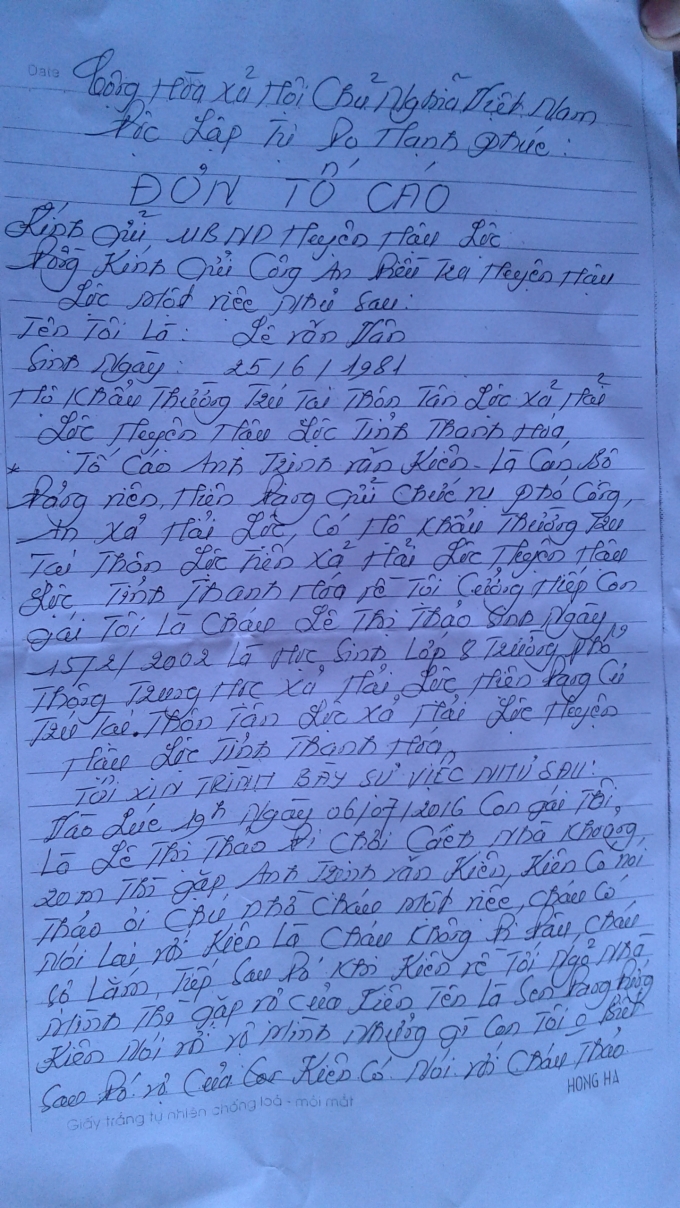 Date
Cộng Hòa Xả Hôi Chủ Nghĩa Việt Nam
Độc Lập Tự Do Hạnh Phúc:
ĐỞN TỐ CÁO
Kính Gửi, UBND Huyện Hâu Lôc
Đồng Kính Gửi Công An Điều Tra Huyện Hâu
Lôc Môt viêc Như Sau:
Tên Tôi Là: Lê văn Vân
Sinh Ngày: 25/6/1981
Hô Khẩu Thường Trú Tai Thôn Tân Lôc Xả Hải
Lôc Huyên Hâu Lôc Tỉnh Thanh Hóa,
* Tố Cáo Anh Trinh văn Kiên - Là Can Bô
Đảng viên, Hiên Đang Giử Chức vu Phó Công,
An Xả Hải Lôc, Có Hô Khẩu Thường Tru
Tai Thôn Lôc Tiên Xả Hải Lôc Huyên Hâu
Lôc, Tỉnh Thanh Hóa về Tôi Cưởng Hiếp Con
gái Tôi Là Cháu Lê Thi Thảo Sinh Ngày,
15/2/2002 Là Hoc Sinh Lớp 8 Trường Phổ
Thông Trung Hoc Xả Hải Lôc Hiên Đang Cư
Trú Tai. Thôn Tân Lôc Xả Hải Lôc Huyên
Hâu Lôc Tỉnh Thanh Hóa,
TÔI XIN TRÌNH BÀY SỰ VIỆC NHƯ SAU:
Vào Lúc 19h Ngày 06/07/2016 Con gái Tôi,
Là Lê Thi Thao Đi Chơi Cách Nhà Khoảng,
20m Thì gặp Anh Trinh văn Kiên, Kiên Có nói
Thảo ơi Chú Nhờ Cháu Môt viêc, Cháu Có
Nói Lai với Kiên Là Cháu Không Đi Đâu, Cháu
Sơ Lắm, Tiếp Sau Đó Khi Kiên về Tới Ngỏ Nhà
Mình Thì gặp vơ của Kiên Tên Là Sen Đang Đứng
Kiên Nói với vơ Mình Nhưng gì Con Tôi o Biết
Sau Đó vơ Của Kiên Có Nói với Cháu Thảo
Giấy trắng tự nhiên chống loá - mỏi mắt
HONG HA